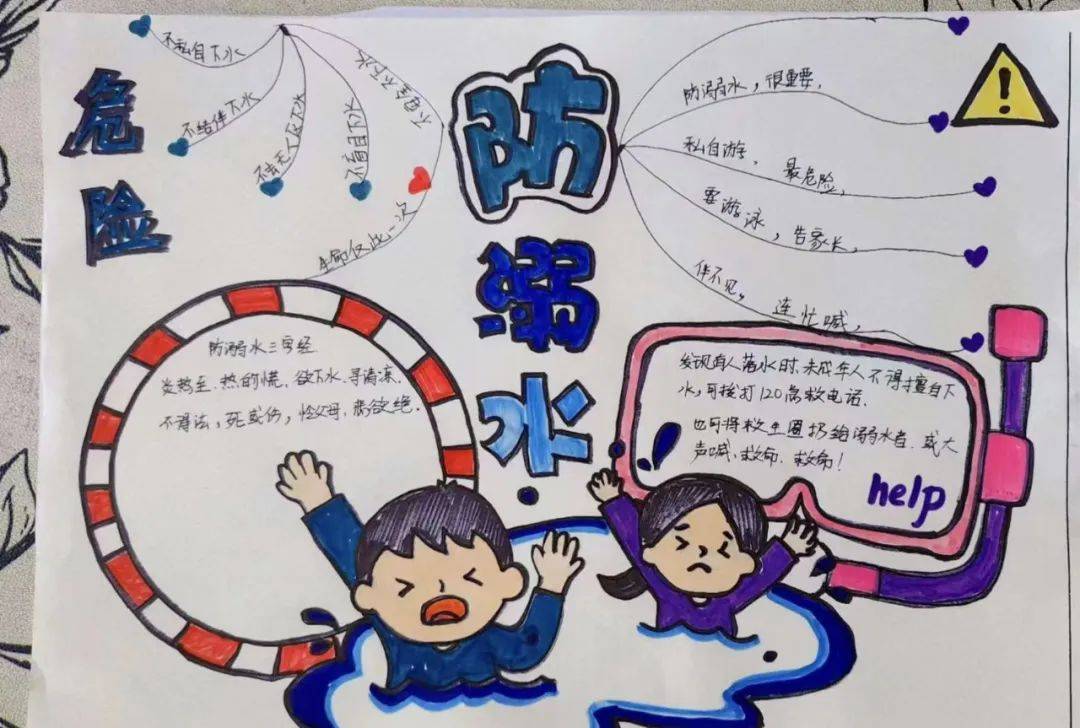 危险
不私自下水
不结伴下水
不去无人区下水
不盲目下水
不下水
生命仅此一次
防溺水
防溺水，很重要，
私自游，最危险，
要游泳，告家长，
伴不见，连忙喊，
!
防溺水三字经
炎热至，热的慌，欲下水，寻清凉，
不得法，死或伤，怜父母，悲欲绝.
发现有人落水时，未成年人不得擅自下
水，可拨打120急救电话.
也可将救生圈扔给溺水者，或大
声喊，救命，救命！
help